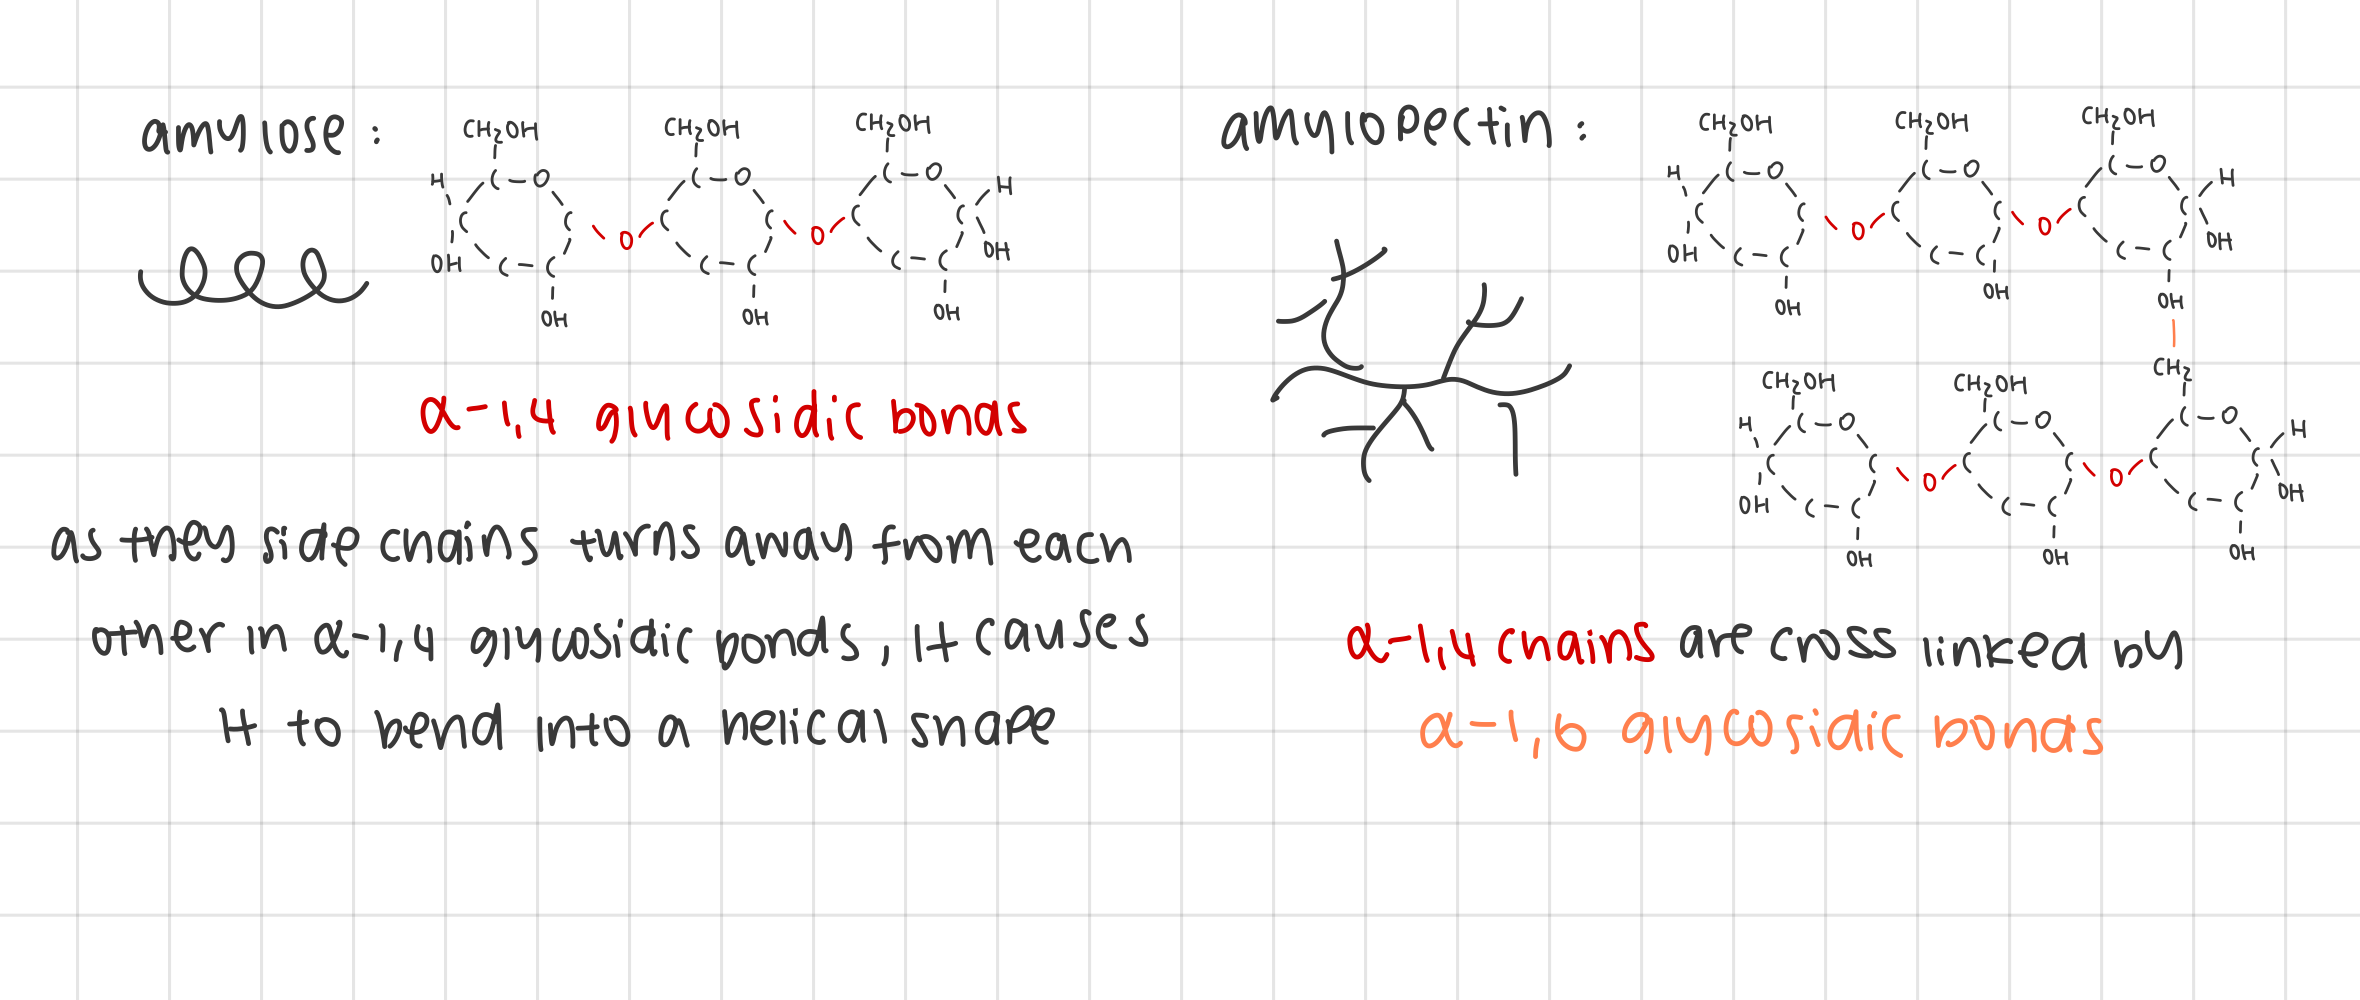 amylose :
CH₂OH CH₂OH CH₂OH
H C – O C – O C – O H
C C O C C O C C
OH C – C C – C C – C OH
OH OH OH
α-1,4 glycosidic bonds
as they side chains turns away from each
other in α-1,4 glycosidic bonds, it causes
it to bend into a helical shape
amylopectin :
CH₂OH CH₂OH CH₂OH
H C – O C – O C – O H
C C O C C O C C
OH C – C C – C C – C OH
OH OH OH
CH₂OH CH₂OH CH₂
H C – O C – O C – O H
C C O C C O C C
OH C – C C – C C – C OH
OH OH OH
α-1,4 chains are cross linked by
α-1,6 glycosidic bonds